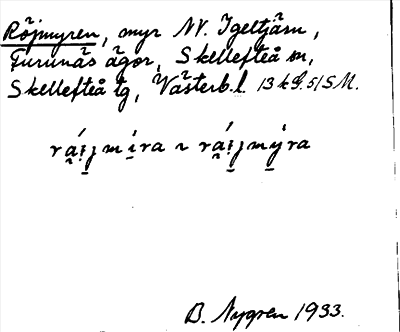 Röjmyren, myr NV. Igeltjärn,
Furunäs ägor, Skellefteå sn,
Skellefteå tg, Västerb.l. 13 kS. 51 SM.
B. Nygren 1933.